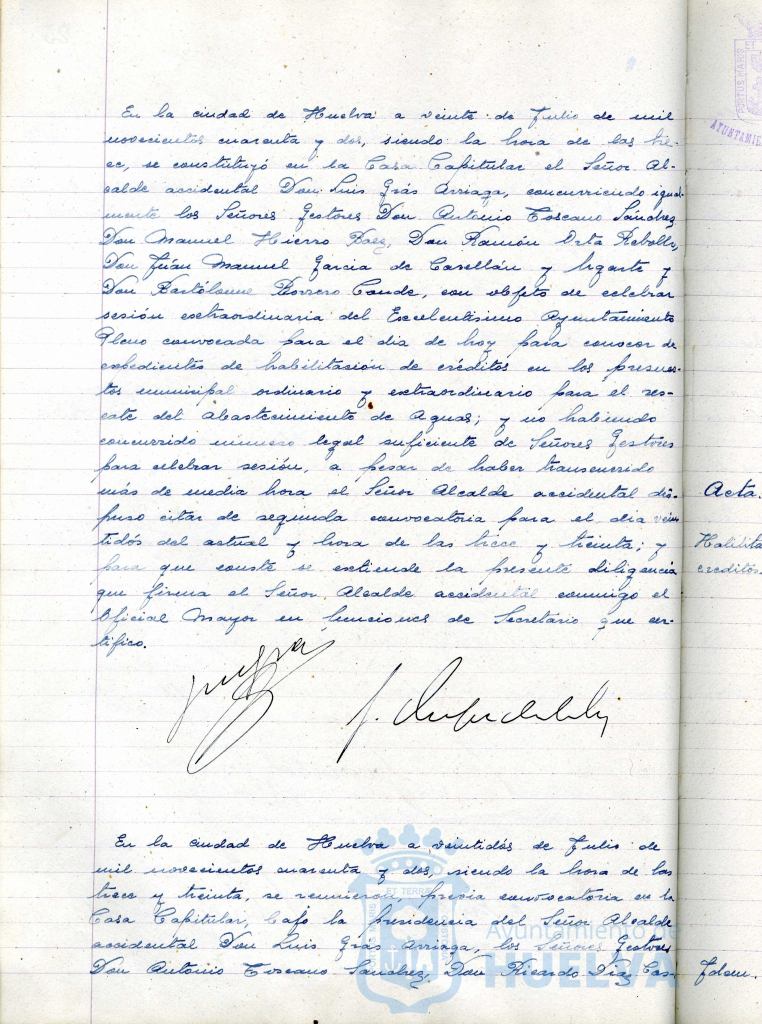 En la ciudad de Huelva a veinte de Julio de mil
novecientos cuarenta y dos, siendo la hora de las tre-
ce, se constituyó en la Casa Capitular el Señor Al-
calde accidental Don Luis Grás Arriaga, concurriendo igual-
mente los Señores Gestores Don Antonio Toscano Sánchez,
Don Manuel Hierro Baez, Don Ramón Orta Rebollo,
Don Juán Manuel Garcia de Casellán y Ugarte y
Don Bartólome Borrero Conde, con objeto de celebrar
sesión extraordinaria del Excelentísimo Ayuntamiento
Pleno convocada para el dia de hoy para conocer de
expedientes de habilitación de créditos en los presues-
tos municipal ordinario y extraordinario para el res-
cate del Abastecimiento de Aguas; y no habiendo
concurrido número legal suficiente de Señores Gestores
para celebrar sesión, a pesar de haber transcurrido
más de media hora el Señor Alcalde accidental dis-
puso citar de segunda convocatoria para el dia vein-
tidós del actual y hora de las trece y treinta; y
para que conste se extiende la presente diligencia
que firma el Señor Alcalde accidental conmigo el
Oficial Mayor en funciones de Secretario que cer-
tifico.
Acta.
Habilita
creditos.
En la ciudad de Huelva a veintidós de Julio de
mil novecientos cuarenta y dos, siendo la hora de las
trece y treinta, se reunieron, previa convocatoria en la
Casa Capitular, bajo la presidencia del Señor Alcalde
accidental Don Luis Grás Arriaga, los Señores Gestores
Don Antonio Toscano Sánchez, Don Ricardo Díaz Cas-
Idem.
Ayuntamiento de
HUELVA